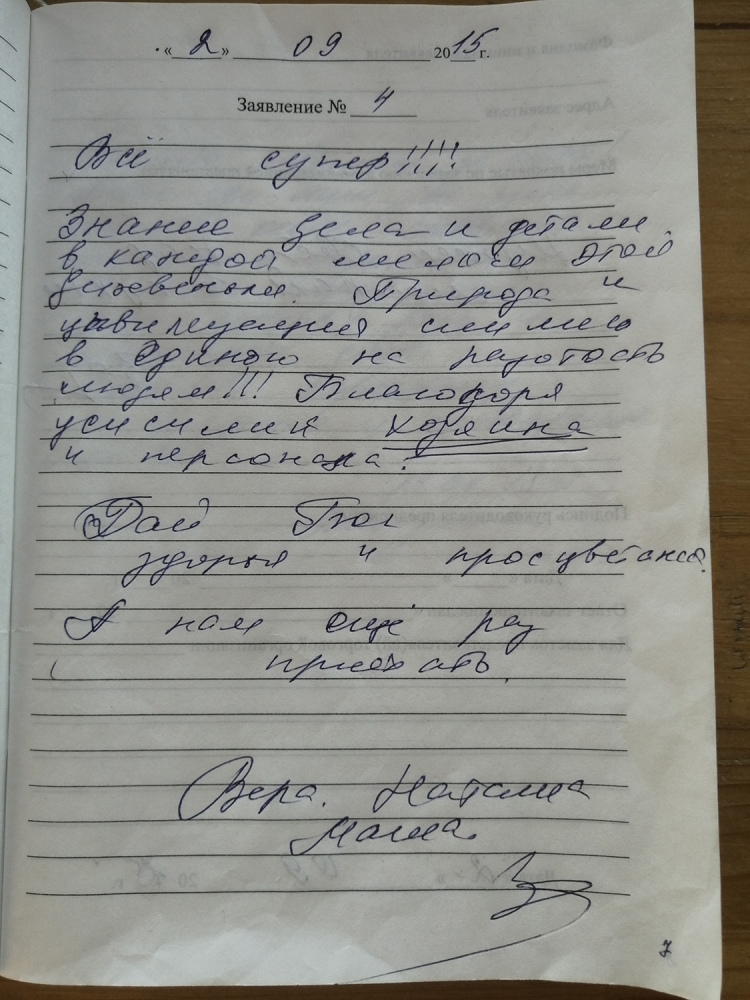 «2» 09 2015 г.
Заявление № 4
Всё супер!!!!
Знание дела и детали
в каждой мелочи этой
Природа и
цивилизация слились
в единою на радость
людям!!! Благодоря
усисилий хозяина
и персонала.
Дай Бог
здоровья и просцветания.
А нам ещё раз
приехать.
Вера. Наталия
Маша.
7